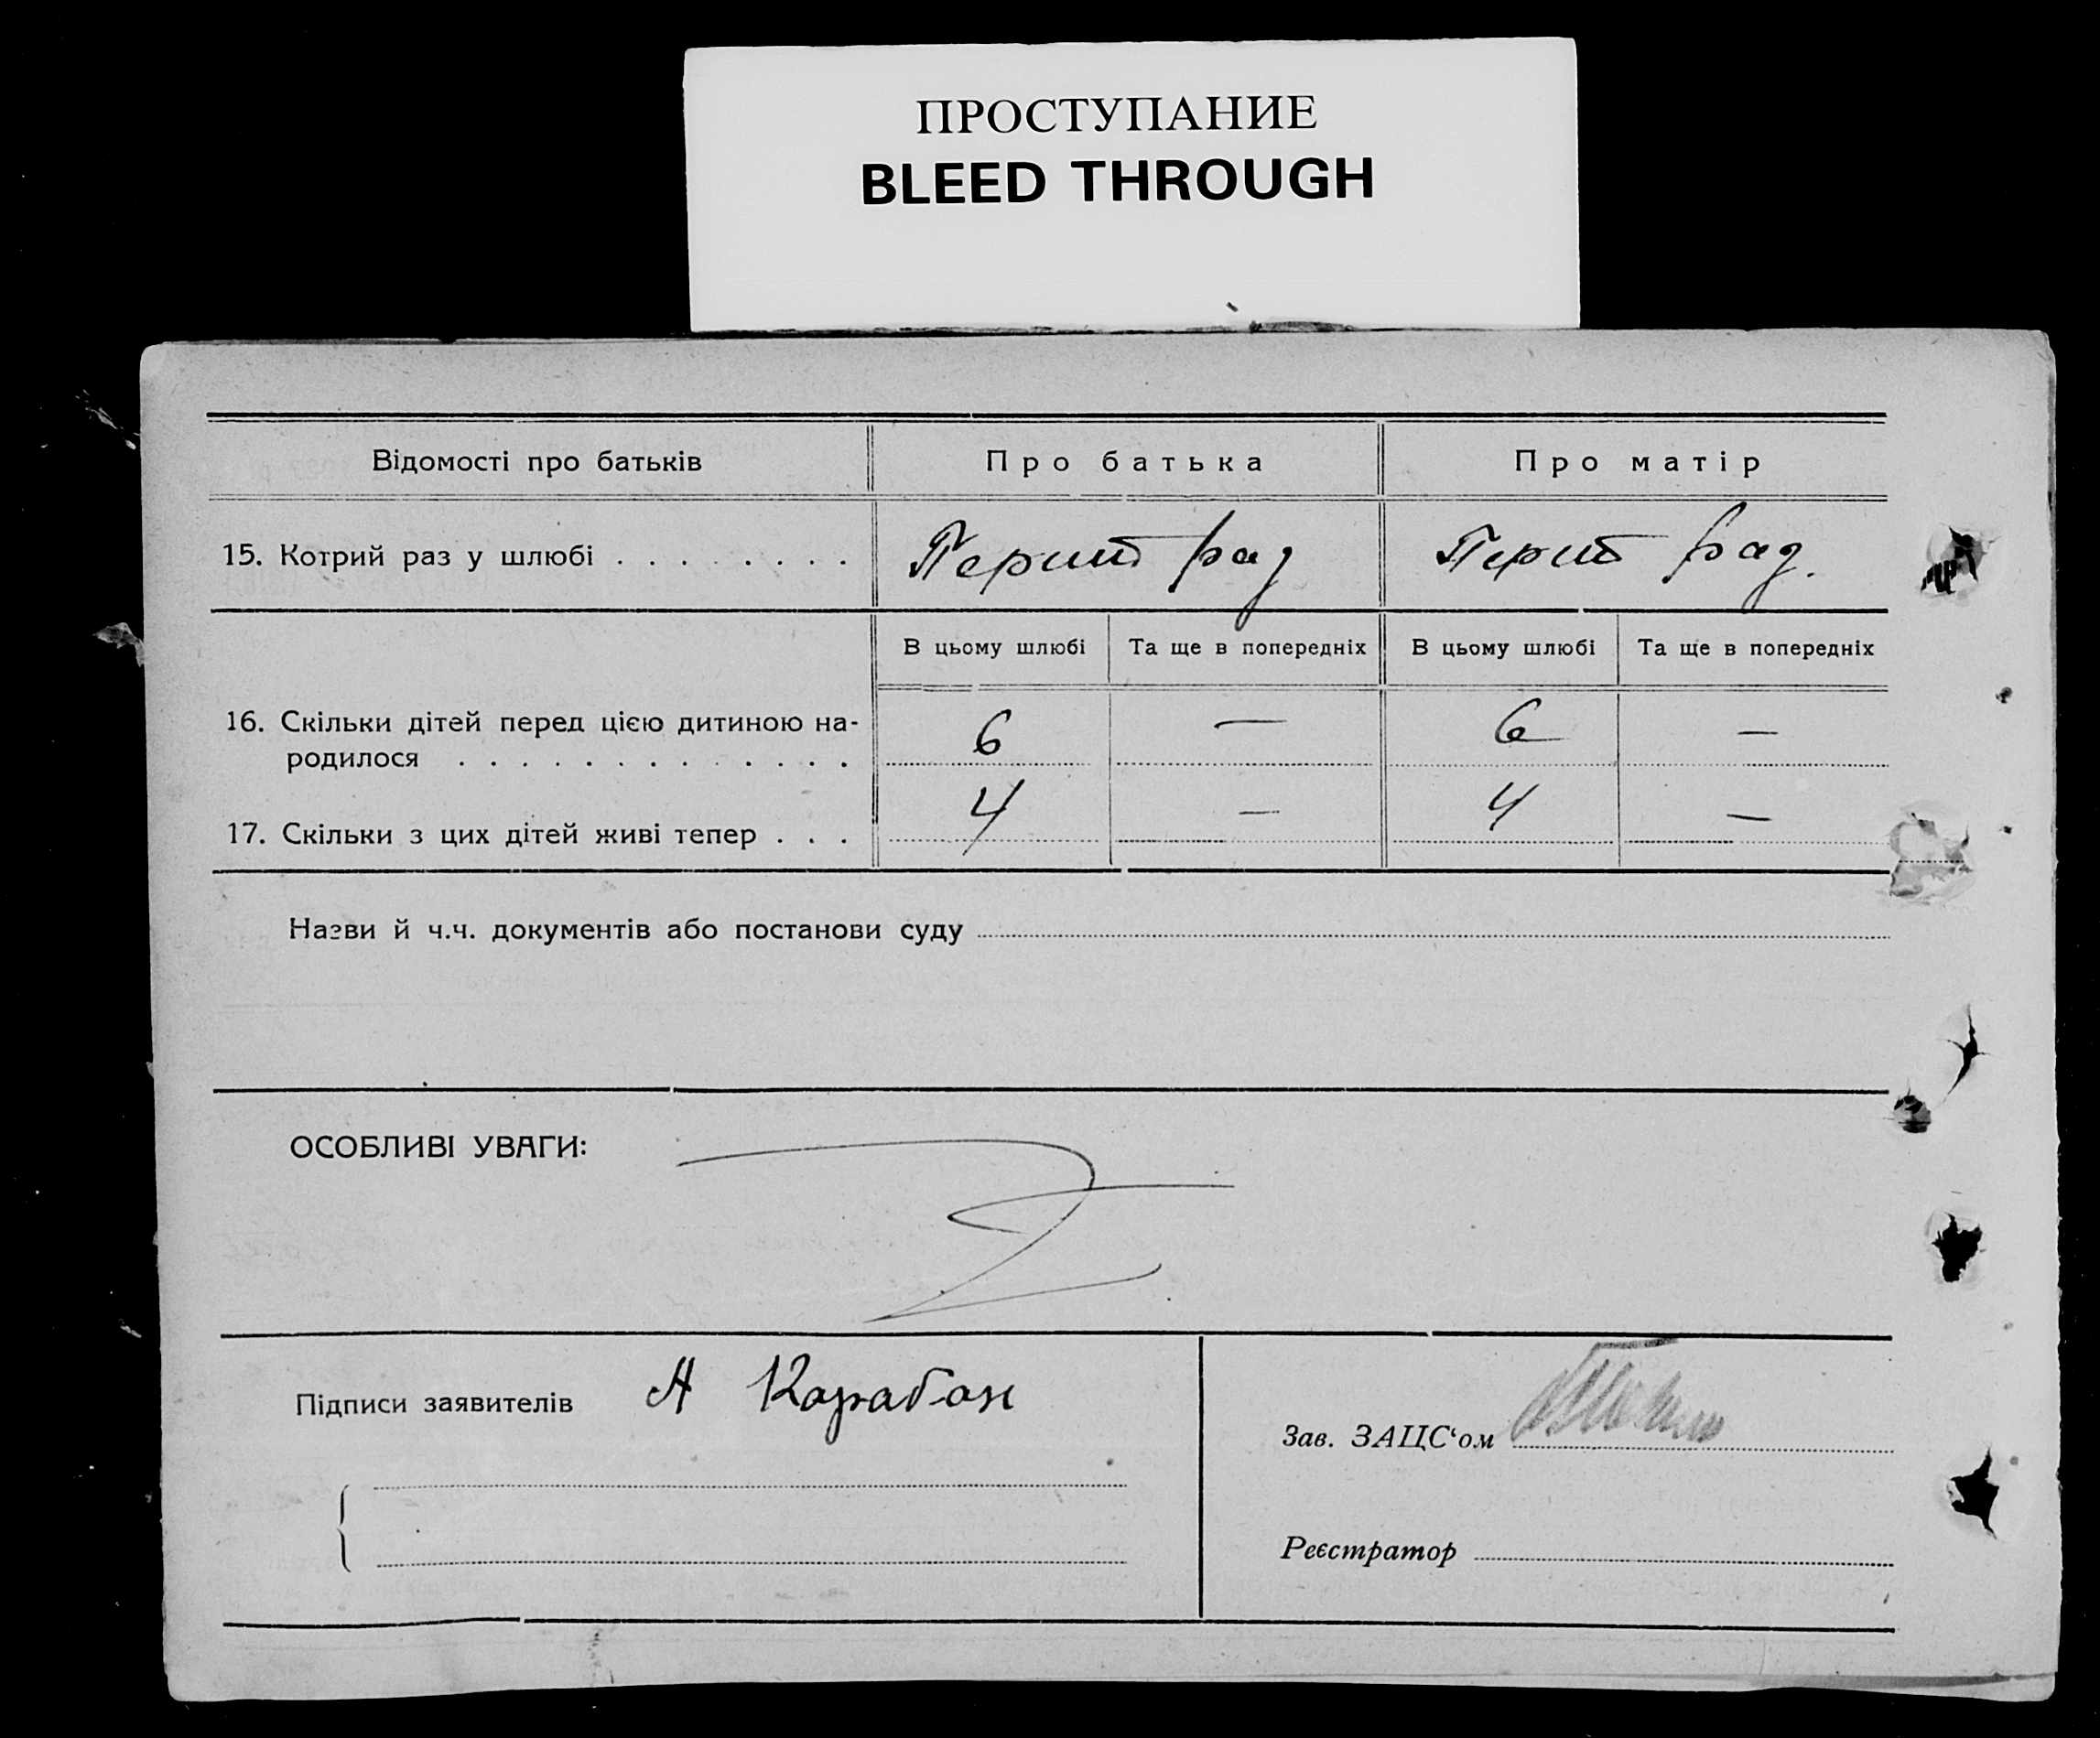 ПРОСТУПАНИЕ
BLEED THROUGH
Відомості про батьків Про батька Про матір
15. Котрий раз у шлюбі . . . . . . . . Перший раз Перший раз.
В цьому шлюбі Та ще в попередніх В цьому шлюбі Та ще в попередніх
16. Скільки дітей перед цією дитиною на-
родилося . . . . . . . . . . . . . 6 — 6 —
17. Скільки з цих дітей живі тепер . . . 4 — 4 —
Назви й ч.ч. документів або постанови суду
ОСОБЛИВІ УВАГИ:
Підписи заявителів А Карабан
Зав. ЗАЦС‘ом
Реєстратор